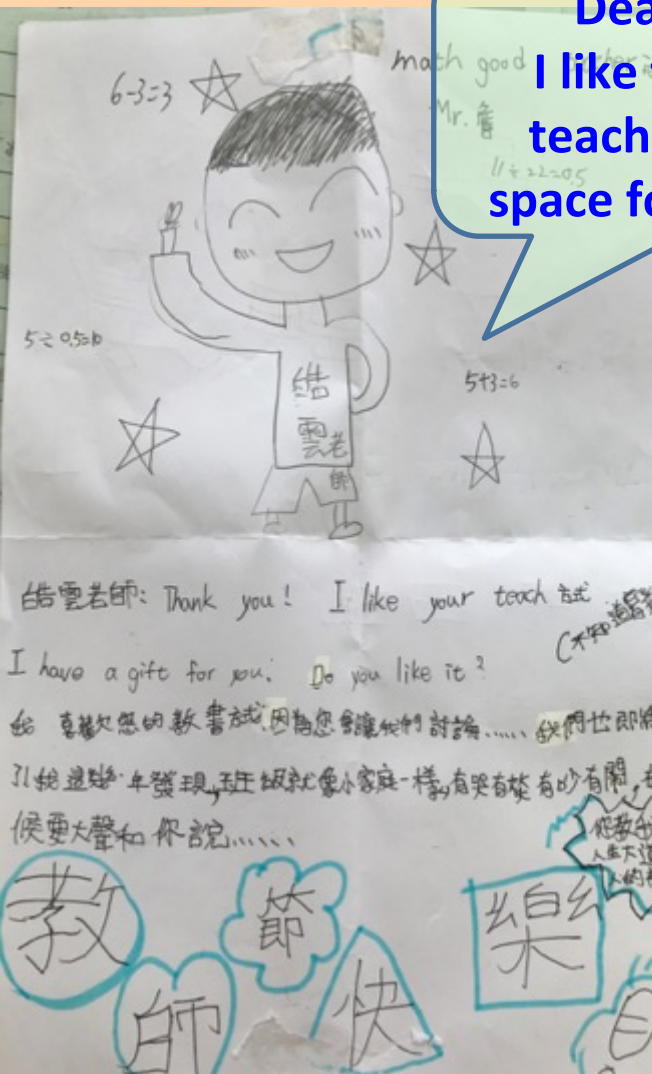 Dea
I like
teach
space fo
math good
Mr. 詹
6-3=3
11÷22=0.5
5÷0.5=10
5+3=6
皓
雲老
師
皓雲老師: Thank you! I like your teach 方式
(不知道
I have a gift for you. Do you like it?
我 喜歡您的教書方式,因為您會讓我們討論...... 我們也即將
了!我這幾年發現,班級就像小家庭一樣,有哭有笑有吵有鬧,
候要大聲和你說......
你教
人生大道
人的
教
師
節
快
樂